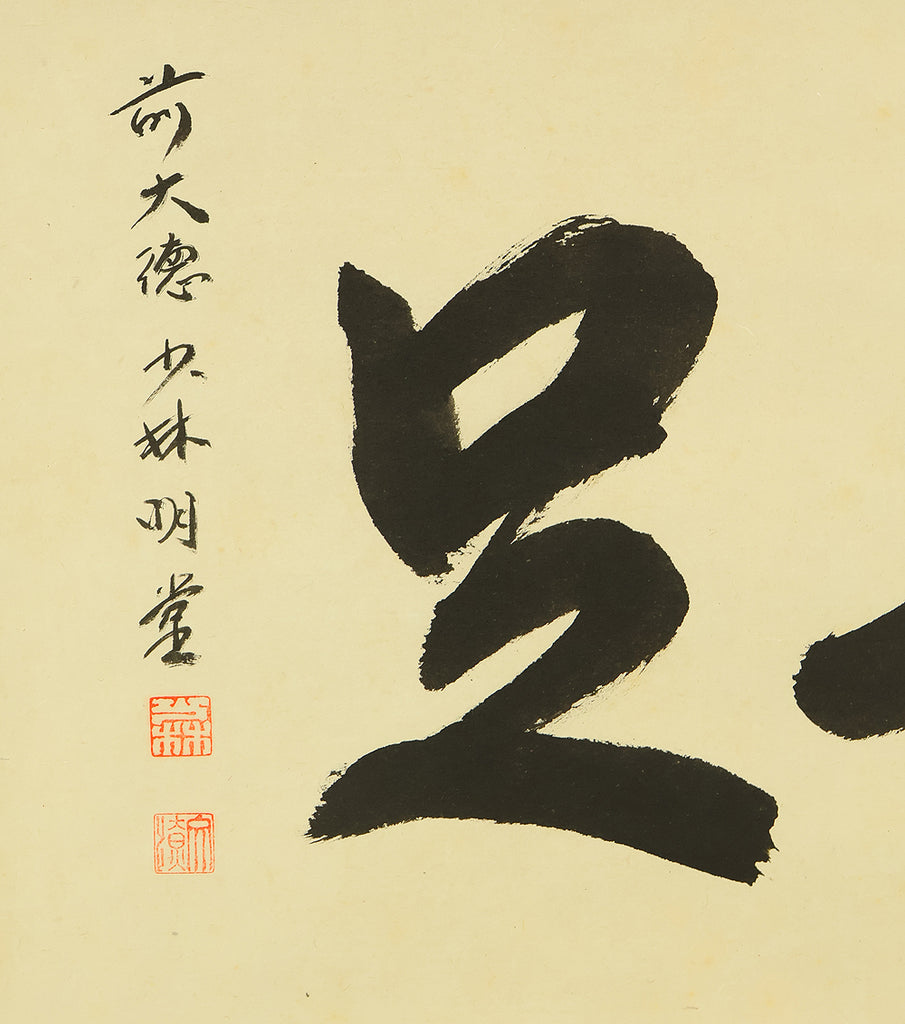 足
前大徳 少林明堂
少林